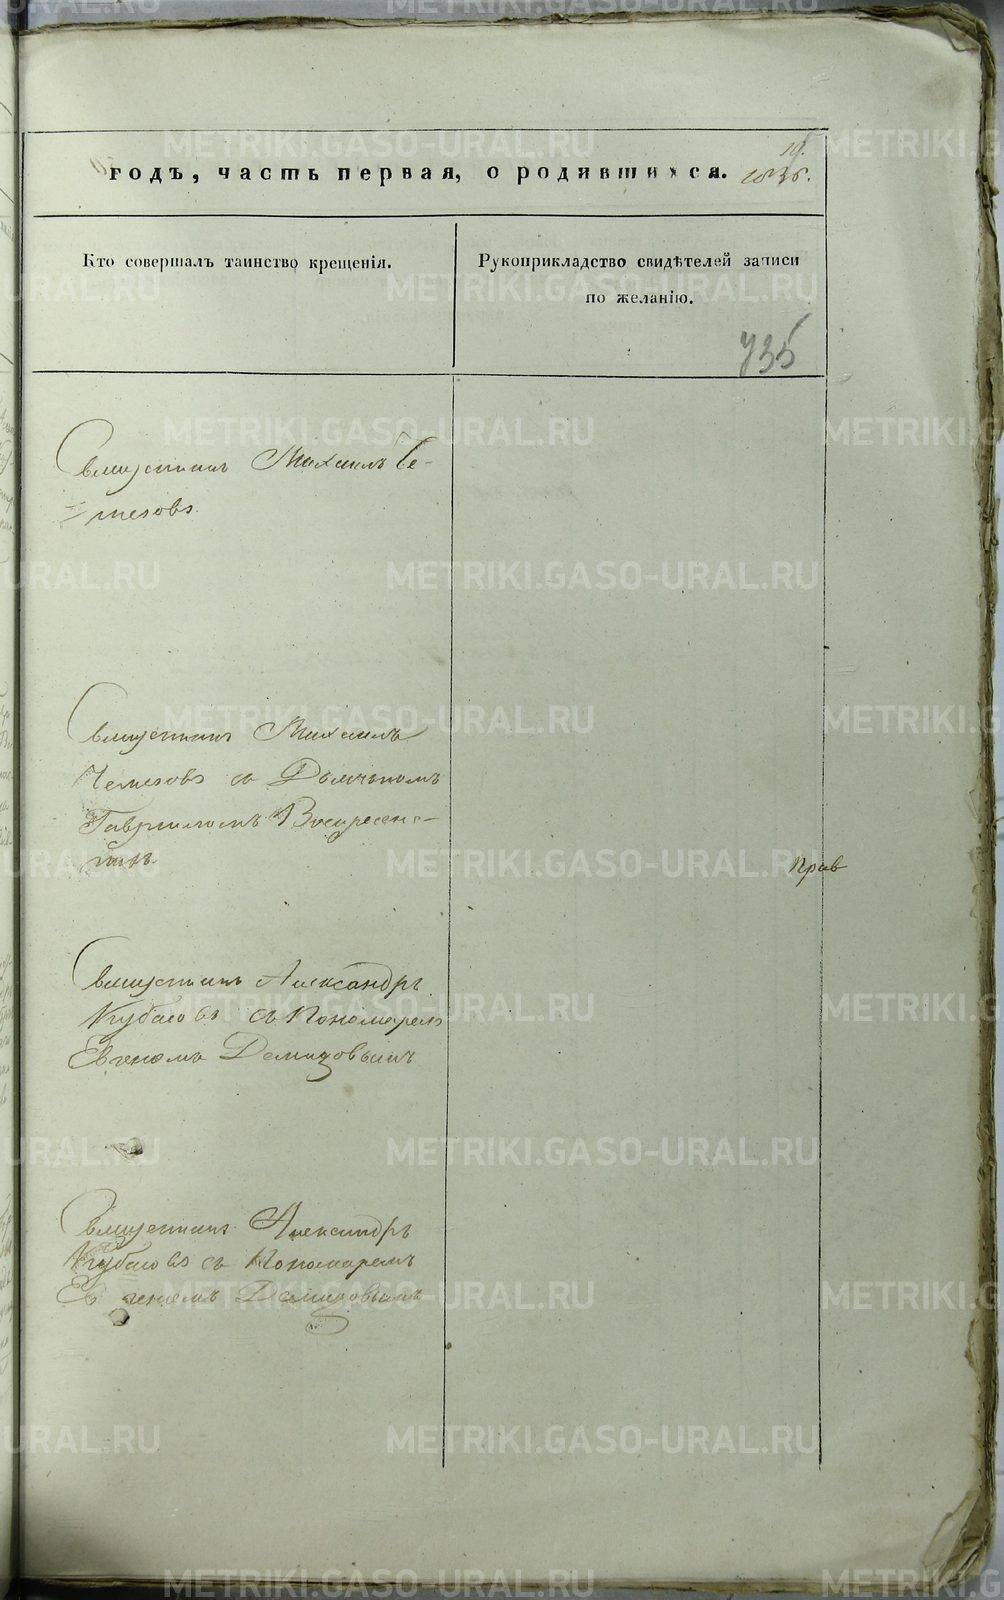 годъ, часть первая, о родившихся.
Кто совершалъ таинство крещенія.
Рукоприкладство свидѣтелей записи
по желанію.
735
Священникъ Михаилъ Че-
мезовъ
Священникъ Михаилъ
Чемезовъ съ Дьячкомъ
Гавриломъ Воскресенс-
кимъ
Прав
Священникъ Александръ
Кубасовъ съ Пономаремъ
Евгеніемъ Демидовымъ
Священникъ Александръ
Кубасовъ съ Пономаремъ
Евгеніемъ Демидовымъ
METRIKI.GASO-URAL.RU